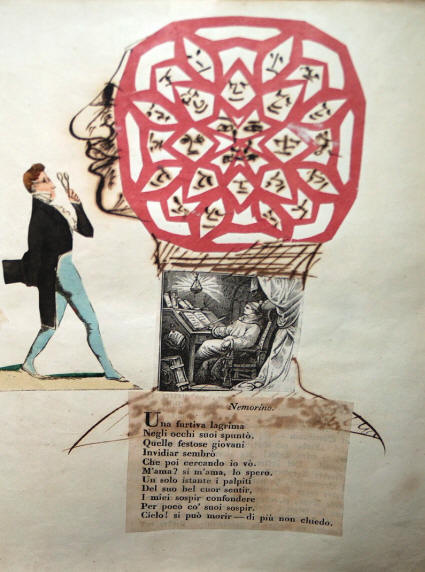 Nemorino.
Una furtiva lagrima
Negli occhi suoi spuntò,
Quelle festose giovani
Invidiar sembrò
Che poi cercando io vò.
M'ama? sì m'ama, lo spero.
Un solo istante i palpiti
Del suo bel cuor sentir,
I miei sospir confondere
Per poco co' suoi sospir.
Cielo! si può morir—di più non chiedo.